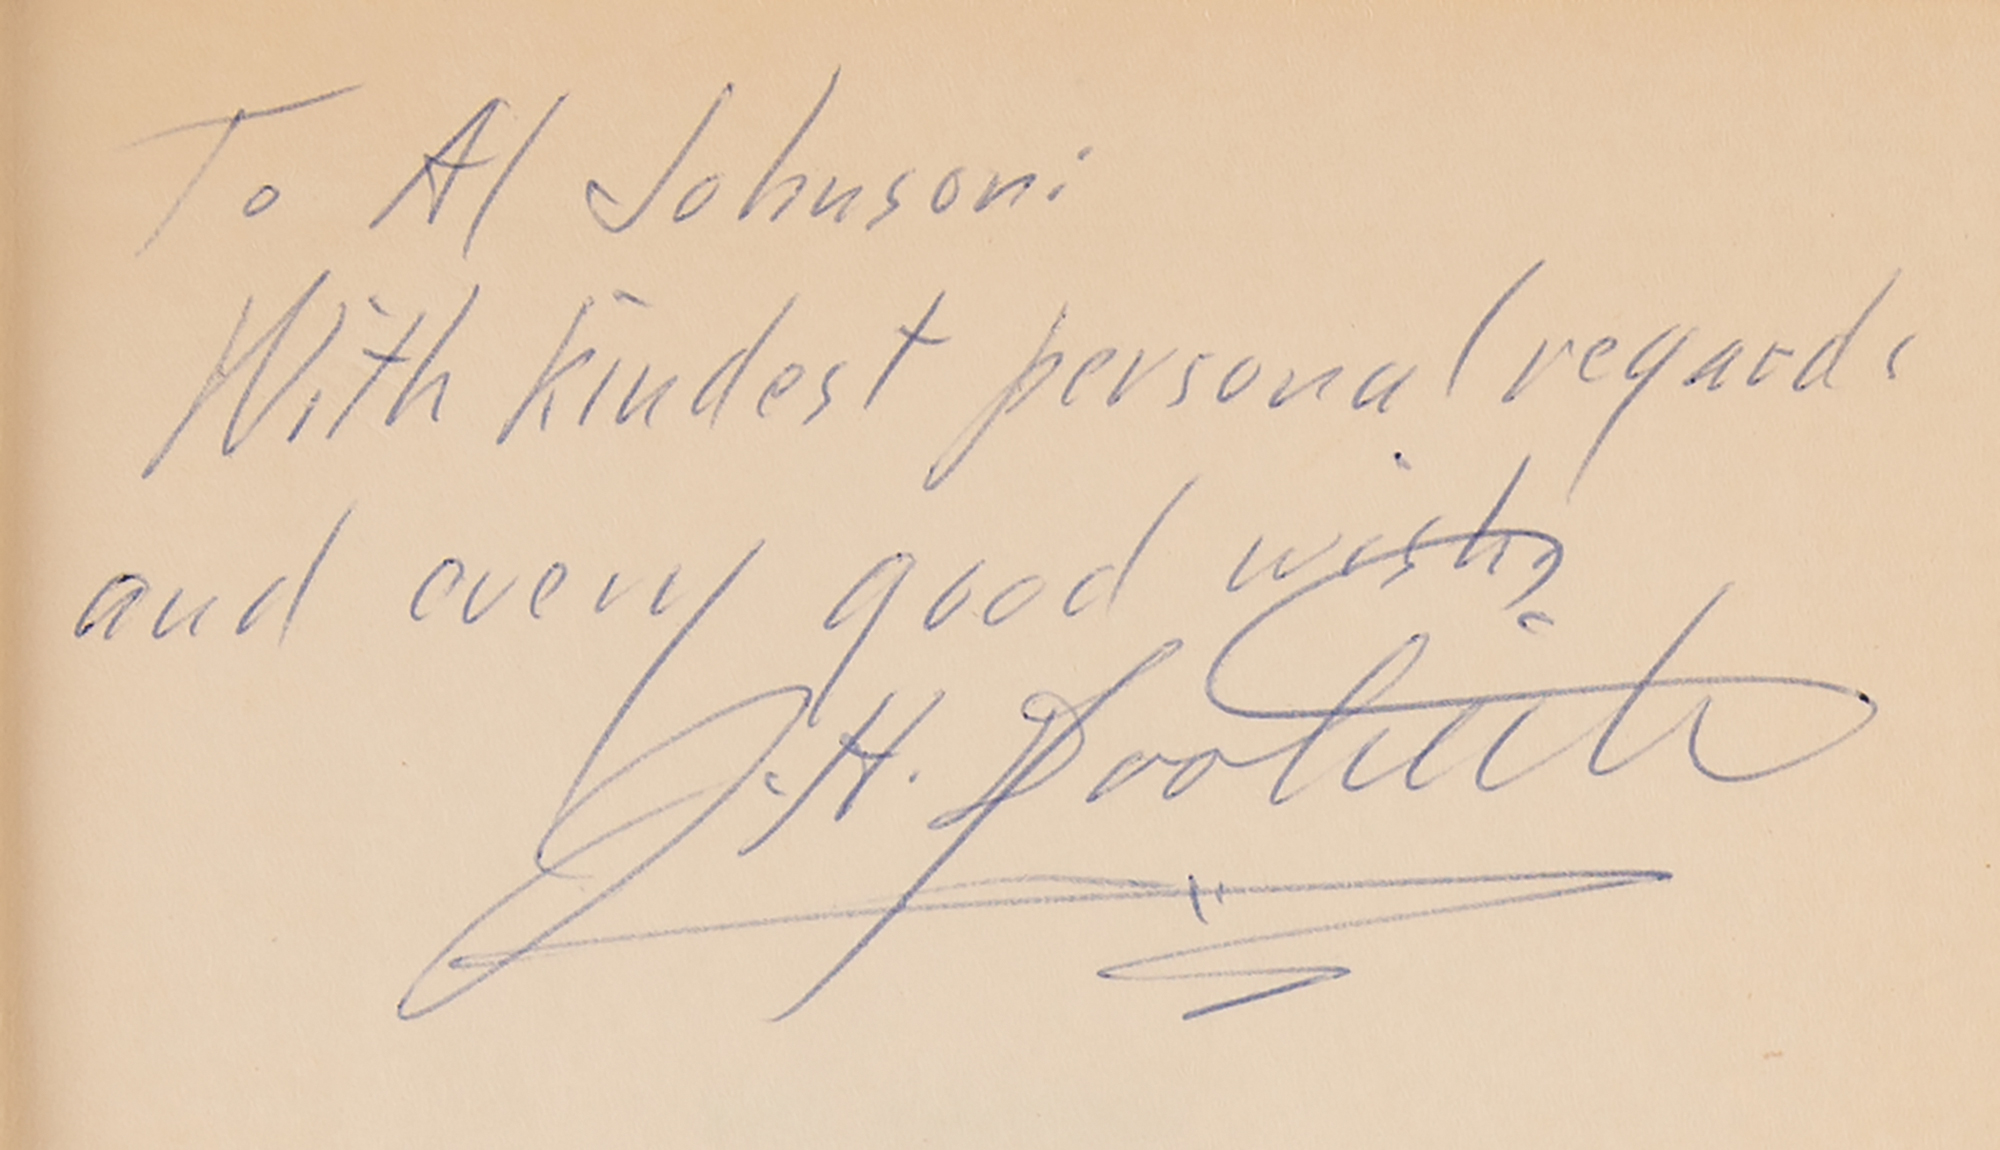 To Al Johnson:
With kindest personal regards
and every good wish,
J. H. Doolittle